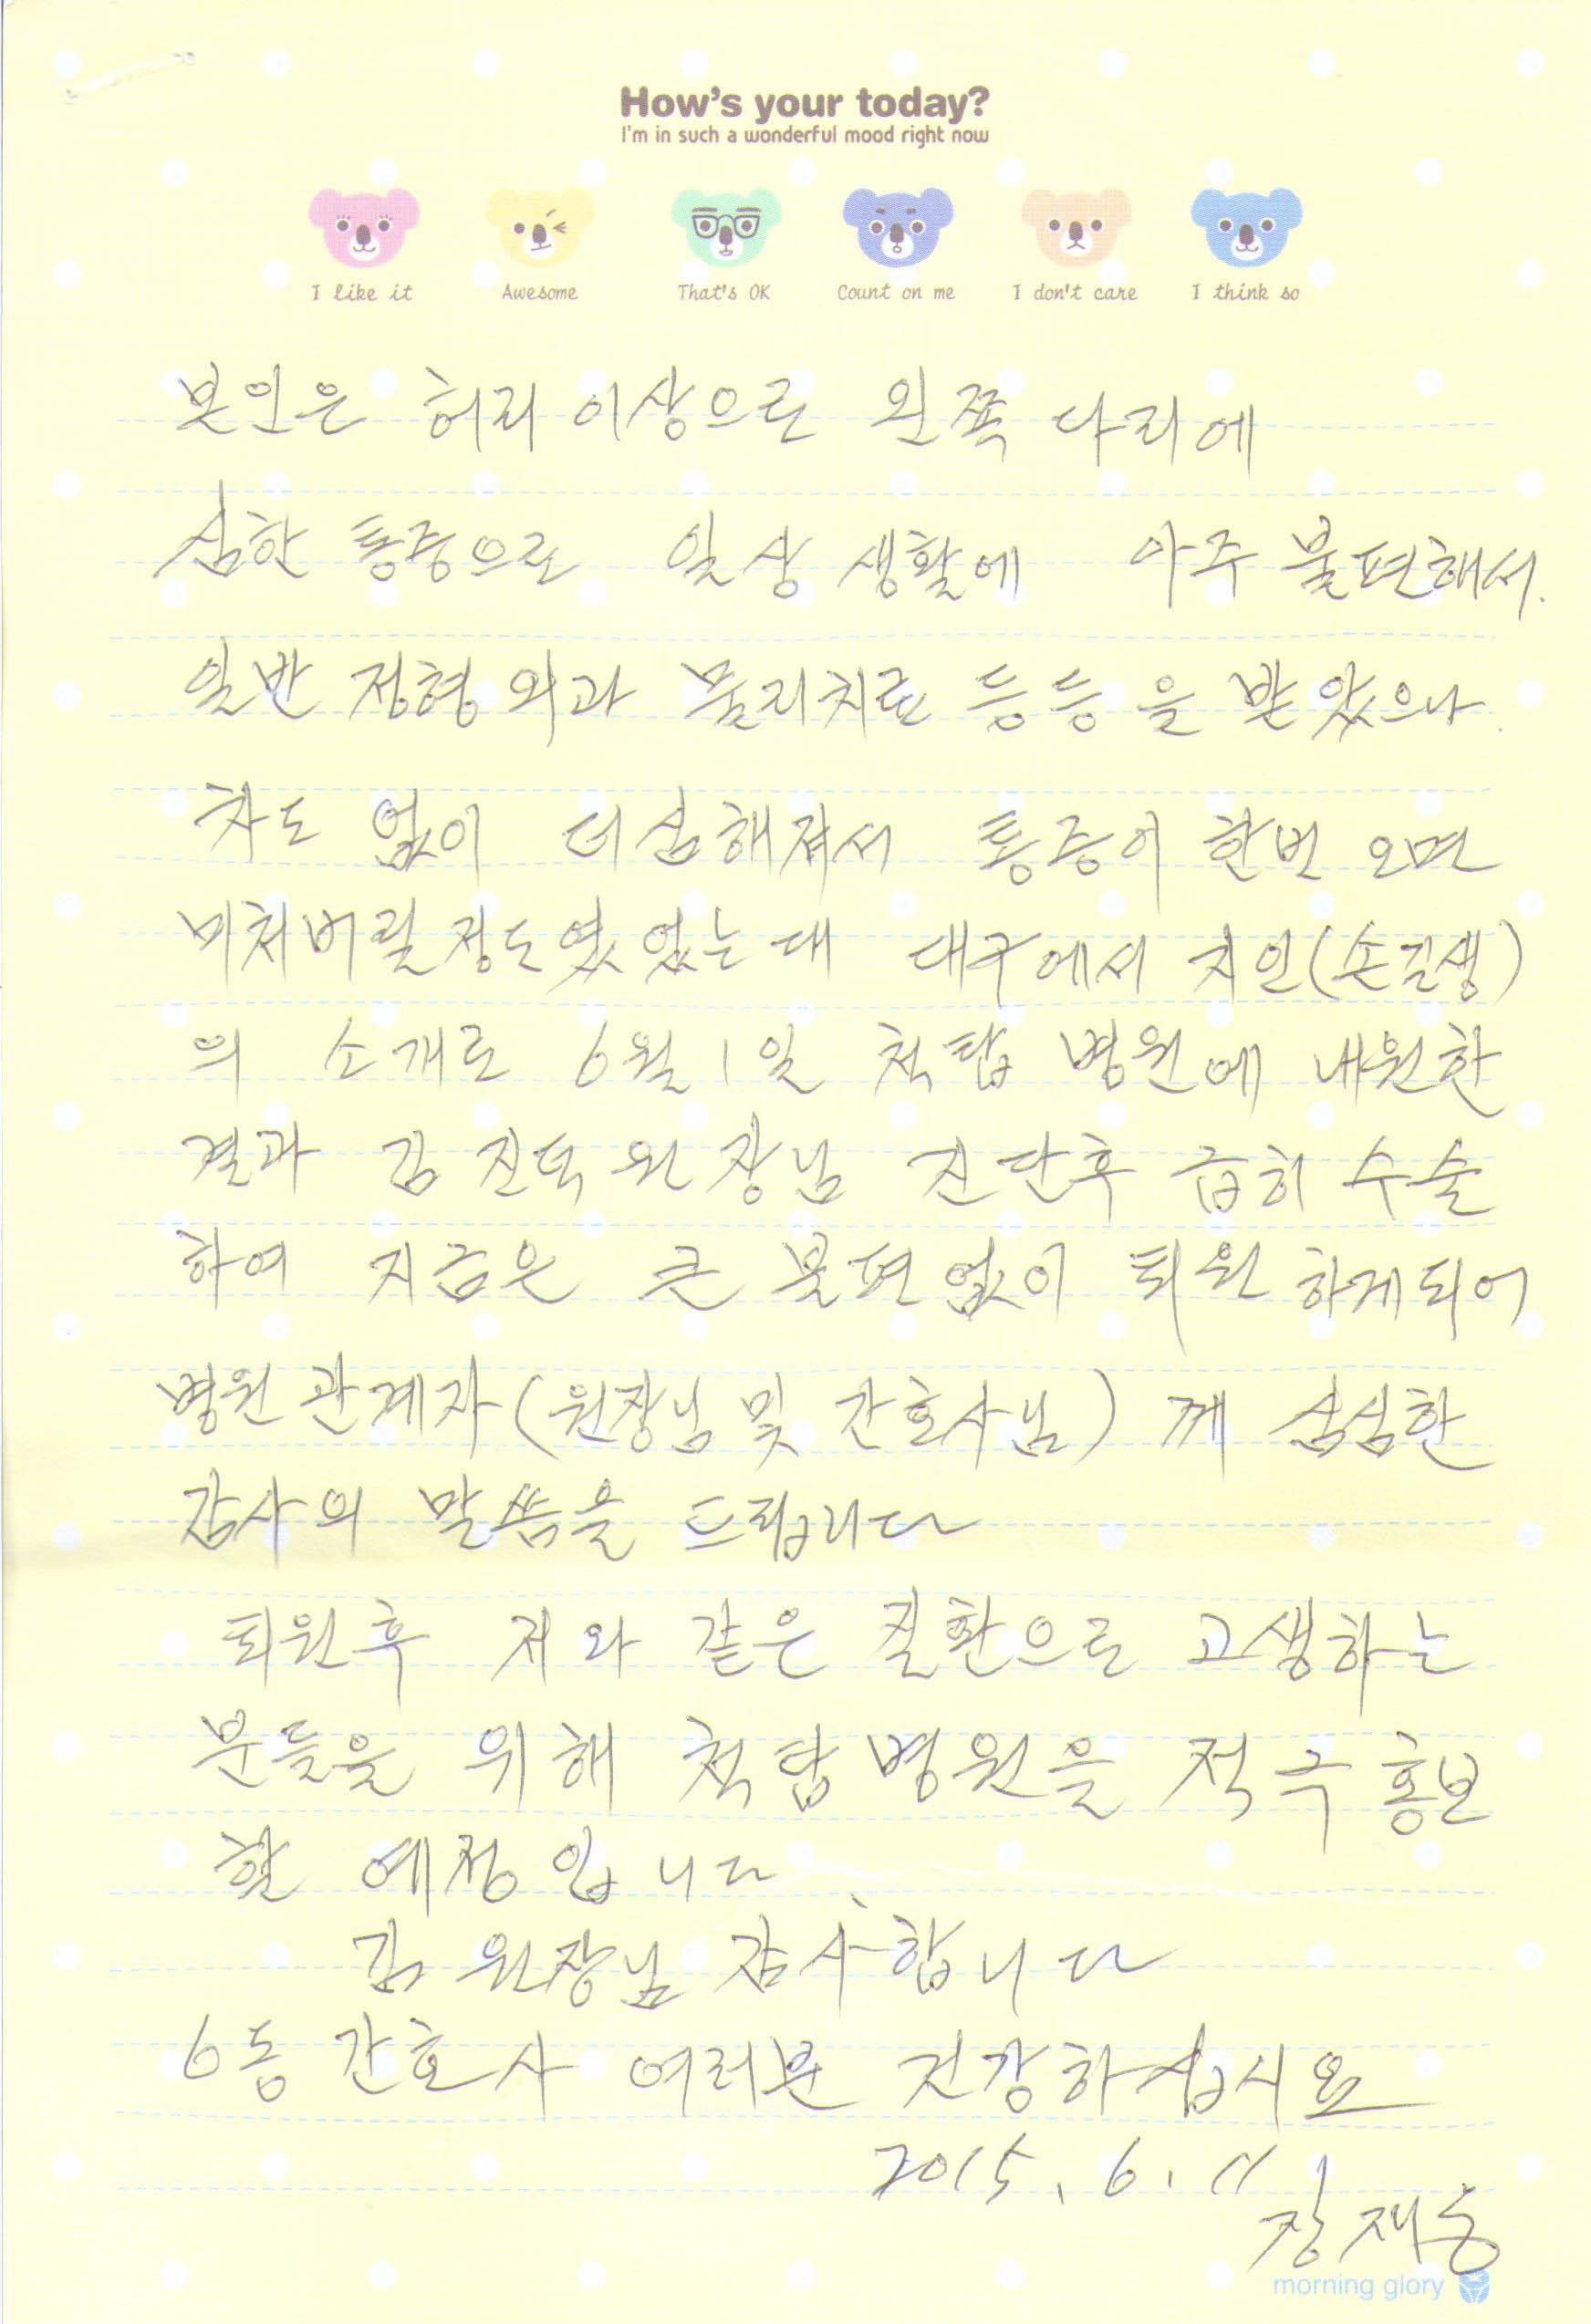 How's your today?
I'm in such a wonderful mood right now
I like it Awesome That's OK Count on me I don't care I think so
본인은 허리 이상으로 왼쪽 다리에
심한 통증으로 일상 생활에 아주 불편해서.
일반 정형외과 물리치료 등등을 받았으나.
차도 없이 더심해져서 통증이 한번 오면
미처버릴 정도였었는대 대구에서 지인(손길생)
의 소개로 6월 1일 척탑 병원에 내원한
결과 김진덕 원장님 진단후 급히 수술
하여 지금은 큰 불편없이 퇴원 하게되어
병원관계자(원장님 및 간호사님) 께 심심한
감사의 말씀을 드립니다
퇴원후 저와 같은 질환으로 고생하는
분들을 위해 척탑병원을 적극 홍보
할 예정입니다.
김 원장님 감사합니다
6동 간호사 여러분 건강하십시요
2015. 6. 11
장재동
morning glory